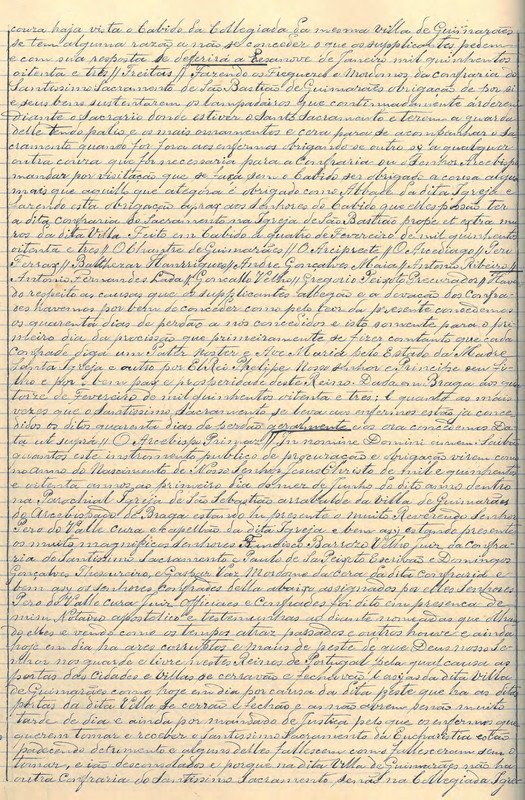 coura haja vista o Cabido da Collegiada da mesma villa de Guimarães
se tem alguma razão a não se conceder o que os supplicantes pedem
e com sua resposta se deferirá a desanove de Janeiro mil quinhentos
oitenta e tres // Freitas // Fazendo os Freguezes e Mordomos da confraria do
Santissimo Sacramento de São Bastião de Guimarães obrigação de por si
e seus bens sustentarem os lampadairos que continuadamente arderem
diante o Sacrario donde estiver o Santo Sacramento e terem a guarda
delle tendo palio e os mais ornamentos e cera para se acompanhar o Sa
cramento quando for fora aos enfermos obrigando-se outro si a qualquer
outra couza que for necessaria para a Confraria ou o Senhor Arcebispo
mandar por visitação que se faça sem o Cabido ser obrigado a cousa algum
mais que aquillo que ategora é obrigado como Abbade da dita Igreja e
fazendo esta obrigação apraz aos senhores do Cabido que elles possão ter
a dita confraria do Sacramento na Igreja de São Bastião prope et extra mu
ros da dita Villa. Feito em Cabido a quatro de Fevereiro de mil quinhentos
oitenta e tres // O Chantre de Guimarães // O Arcipreste // O Arcediago // Pero
Ferraz // Balthezar Hanrriques // Andre Gonçalves Maia // Antonio Ribeiro //
Antonio Fernandes Lada // Goncallo Velho // Gregorio Peixoto Precurador // Haven
do respeito as causas que os supplicantes allegão e a devação dos Confra
des havemos por bem do conceder como pelo teor da presente concedemos
os quarenta dias de perdão a nós concedidos e isto somente para o pri
meiro dia da procissão que primeiramente se fizer comtanto que cada
confrade diga um Patter noster e Ave Maria pelo Estado da Madre
Santa Igreja e outro por ElRei Phelipe Noso Senhor e Principe seu Fi
lho e por o bem paz e prosperidade deste Reino. Dada em Braga aos qua
torze de Fevereiro de mil quinhentos oitenta e tres: e quanto as mais
vezes que o Santissimo Sacramento se leva aos enfermos estão ja conce
didos os ditos quarenta dias de perdão geralmente e os ora concedemos Da
ta ut supra // O Arcebispo Primaz // In nomine Domini amem Saibão
quantos este instrumento publico de procuração e obrigação virem como
no anno do Nascimento de Noso Senhor Jesus Christo de mil e quinhentos
e oitenta annos ao primeiro dia do mez de Junho do dito anno dentro
na Parochial Igreja de São Sebastião arrabalde da villa de Guimarães
do Arcebispado de Braga estando hi presente o muito Reverendo Senhor
Pero do Valle cura e capellão da dita Igreja e bem asi estando presentes
os muito magnificos senhores Francisco Barrozo Velho juiz da Confra
ria do Santissimo Sacramento e Paulo de Sá Peixoto Escrivão e Domingos
Gonçalves Thesureiro, e Gaspar Vaz Mordomo da Cera da dita Confraria e
bem asy os senhores Confrades della abaixo assignados por elles Senhores
Pero do Valle cura juiz Officiaes e Confrades foi dito em presença de
mim Notario apostolico e testemunhas ao diante nomeadas que olhan
do elles e vendo como os tempos atraz passados e outros houve e ainda
hoje em dia ha ares corruptos e maes de peste de que Deus nosso Se
nhor nos guarde e livre nestes Reinos de Portugal pela qual causa as
portas das Cidades e Villas se cerravão e fechavão e asi as da dita Villa
de Guimarães como hoje em dia por causa da dita peste que hi as ditas
portas da dita Villa se cerrão e fechão e as não abrem senão muito
tarde do dia e ainda por mandado de Justiça pelo que os enfermos que
querem tomar e receber o Santissimo Sacramento da Eucharistia estão
padecendo detrimento e alguns delles fallescem como fallesceram sem o
tomar, e ião desconsolados e porque na dita Villa de Guimarães não ha
outra Confraria do Santissimo Sacramento senão na Collegiada Igre-